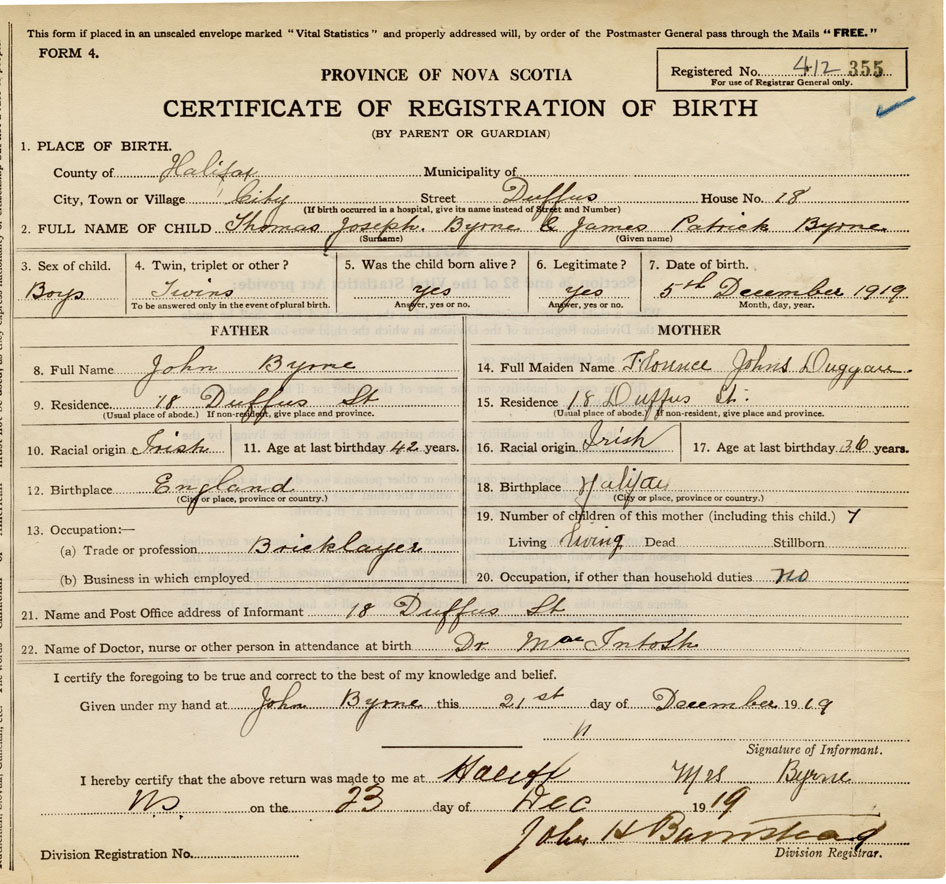 This form if placed in an unsealed envelope marked "Vital Statistics" and properly addressed will, by order of the Postmaster General pass through the Mails "FREE."
FORM 4.
Registered No. 412 355
For use of Registrar General only.
PROVINCE OF NOVA SCOTIA
CERTIFICATE OF REGISTRATION OF BIRTH
(BY PARENT OR GUARDIAN)
1. PLACE OF BIRTH.
County of Halifax Municipality of
City, Town or Village City Street Duffus House No. 18
(If birth occurred in a hospital, give its name instead of Street and Number)
2. FULL NAME OF CHILD Thomas Joseph. Byrne & James Patrick Byrne
(Surname) (Given name)
3. Sex of child. 4. Twin, triplet or other? 5. Was the child born alive? 6. Legitimate? 7. Date of birth.
Boys Twins yes yes 5th December 1919
To be answered only in the event of plural birth. Answer, yes or no. Answer, yes or no. Month, day, year.
FATHER
8. Full Name John Byrne
9. Residence 18 Duffus St
(Usual place of abode.) If non-resident, give place and province.
10. Racial origin Irish 11. Age at last birthday 42 years.
12. Birthplace England
(City or place, province or country.)
13. Occupation:—
(a) Trade or profession Bricklayer
(b) Business in which employed
MOTHER
14. Full Maiden Name Florence Johns
15. Residence 18 Duffus St.
(Usual place of abode.) If non-resident, give place and province.
16. Racial origin Irish 17. Age at last birthday 36 years.
18. Birthplace Halifax
(City or place, province or country.)
19. Number of children of this mother (including this child.) 7
Living living Dead Stillborn
20. Occupation, if other than household duties. no
21. Name and Post Office address of Informant 18 Duffus St
22. Name of Doctor, nurse or other person in attendance at birth Dr. MacIntosh
I certify the foregoing to be true and correct to the best of my knowledge and belief.
Given under my hand at John Byrne this 21st day of December 1919
Signature of Informant.
I hereby certify that the above return was made to me at Halifx Mrs Byrne
NS on the 23 day of Dec 1919
John H Barnstead
Division Registration No. Division Registrar.